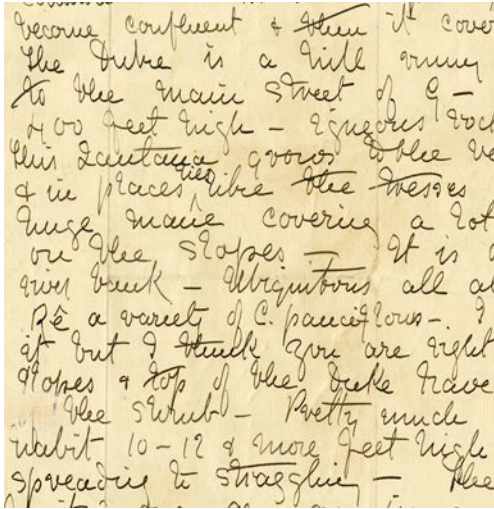 become confluent & then it cover
The Duke is a hill runny
to the main street of G-
400 feet high - igneous rock
this Lantana grows to the ve
& in places lies like the tresses
huge mane covering a lot
on the slopes - It is a
river bank - Ubiquitous all a
Rê a variety of C. pauciflorus - I
it but I think you are right
slopes & top of the Duke have
the shrub - Pretty much
habit 10-12 & more feet high
spreading to straggling - The